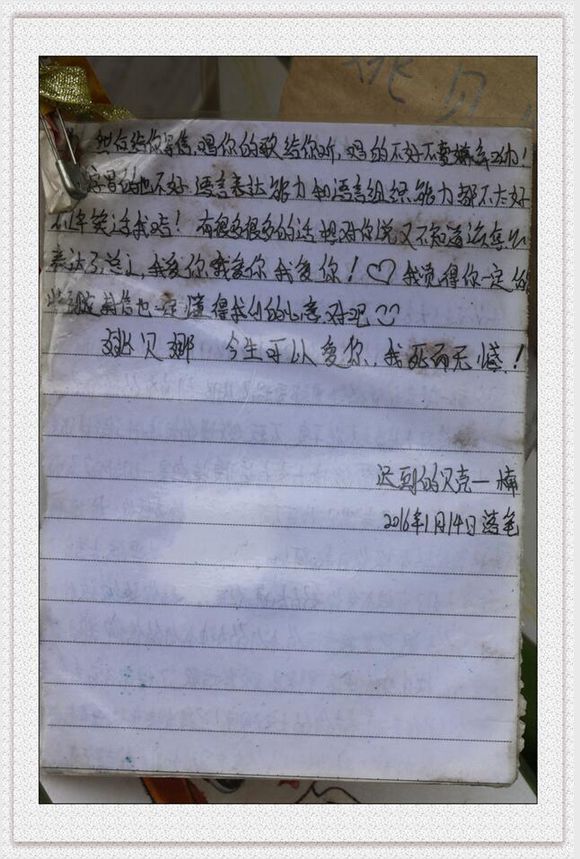 姚贝
然后给你写信，唱你的歌给你听，唱的不好不要嫌弃我哦！
字写的也不好 语言表达能力和语言组织能力都不太好
不许笑话我哈！有很多很多的话想对你说又不知道该怎么
表达了总之，我爱你 我爱你 我爱你！♡ 我觉得你一定的
相信也一定懂得我们的心意对吧♡
姚贝娜 今生可以爱你，我死而无憾！
迟到的贝壳—楠
2016年1月14日落笔